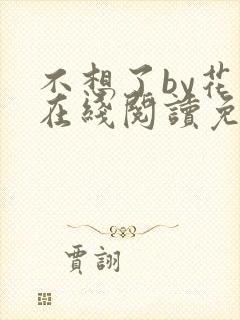 不想了by花
在綫閱讀免
賈詡